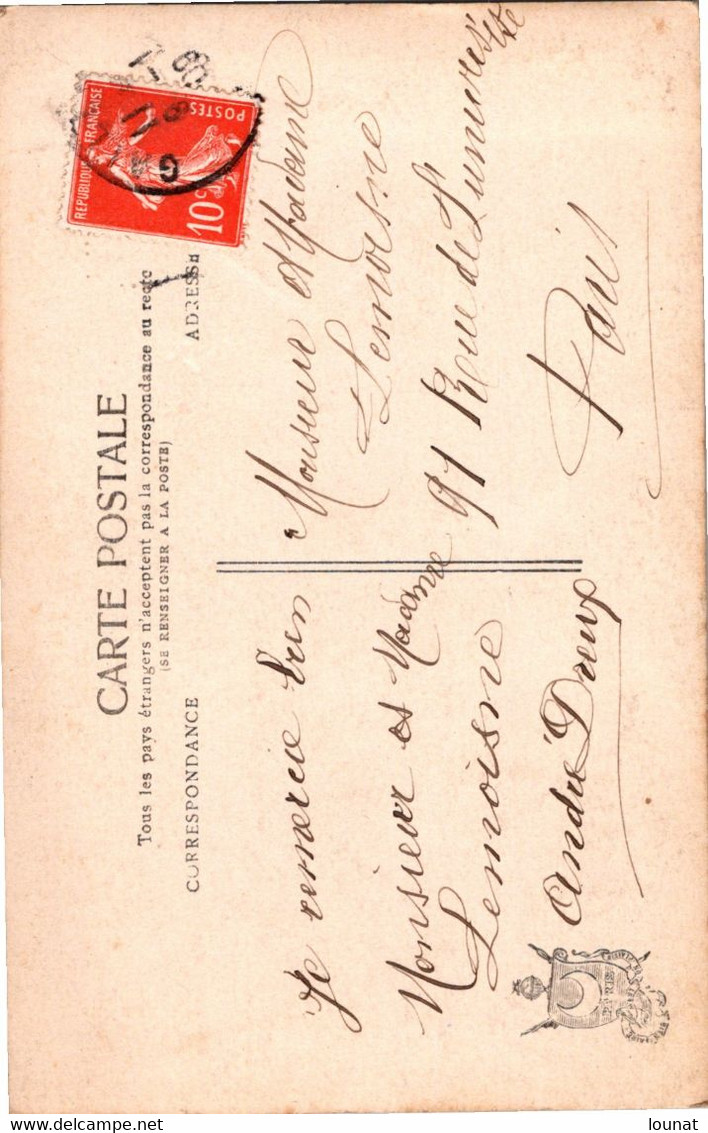 CARTE POSTALE
Tous les pays étrangers n'acceptent pas la correspondance au recto
(SE RENSEIGNER A LA POSTE)
CORRESPONDANCE
ADRESSE
Je remercie bien
Monsieur et Madame
Lemoisne
André
Monsieur et Madame
Lemoisne
97 Rue de L'université
Paris
REPUBLIQUE FRANÇAISE
POSTES
10c
lounat